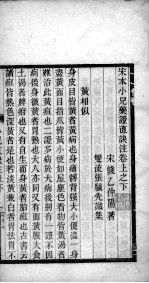 宋本小兒藥證直訣注卷上之下
宋錢乙仲陽著
雙流張驥先識集
黃相似
身皮目皆黃者黃病也身痛膊背強大小便澀腹
盡黃面目指爪皆黃小便如屋塵色看物皆黃渴者
難治此黃疸也二證多病於大病後別有一證不因
病後身微黃者胃熱也大人亦同又有面黃腹大食
土渴者脾疳也又有自生而身黃者胎疸也古書云
諸疸皆熱色深黃者是也若淡黃兼白者胃怯胃不